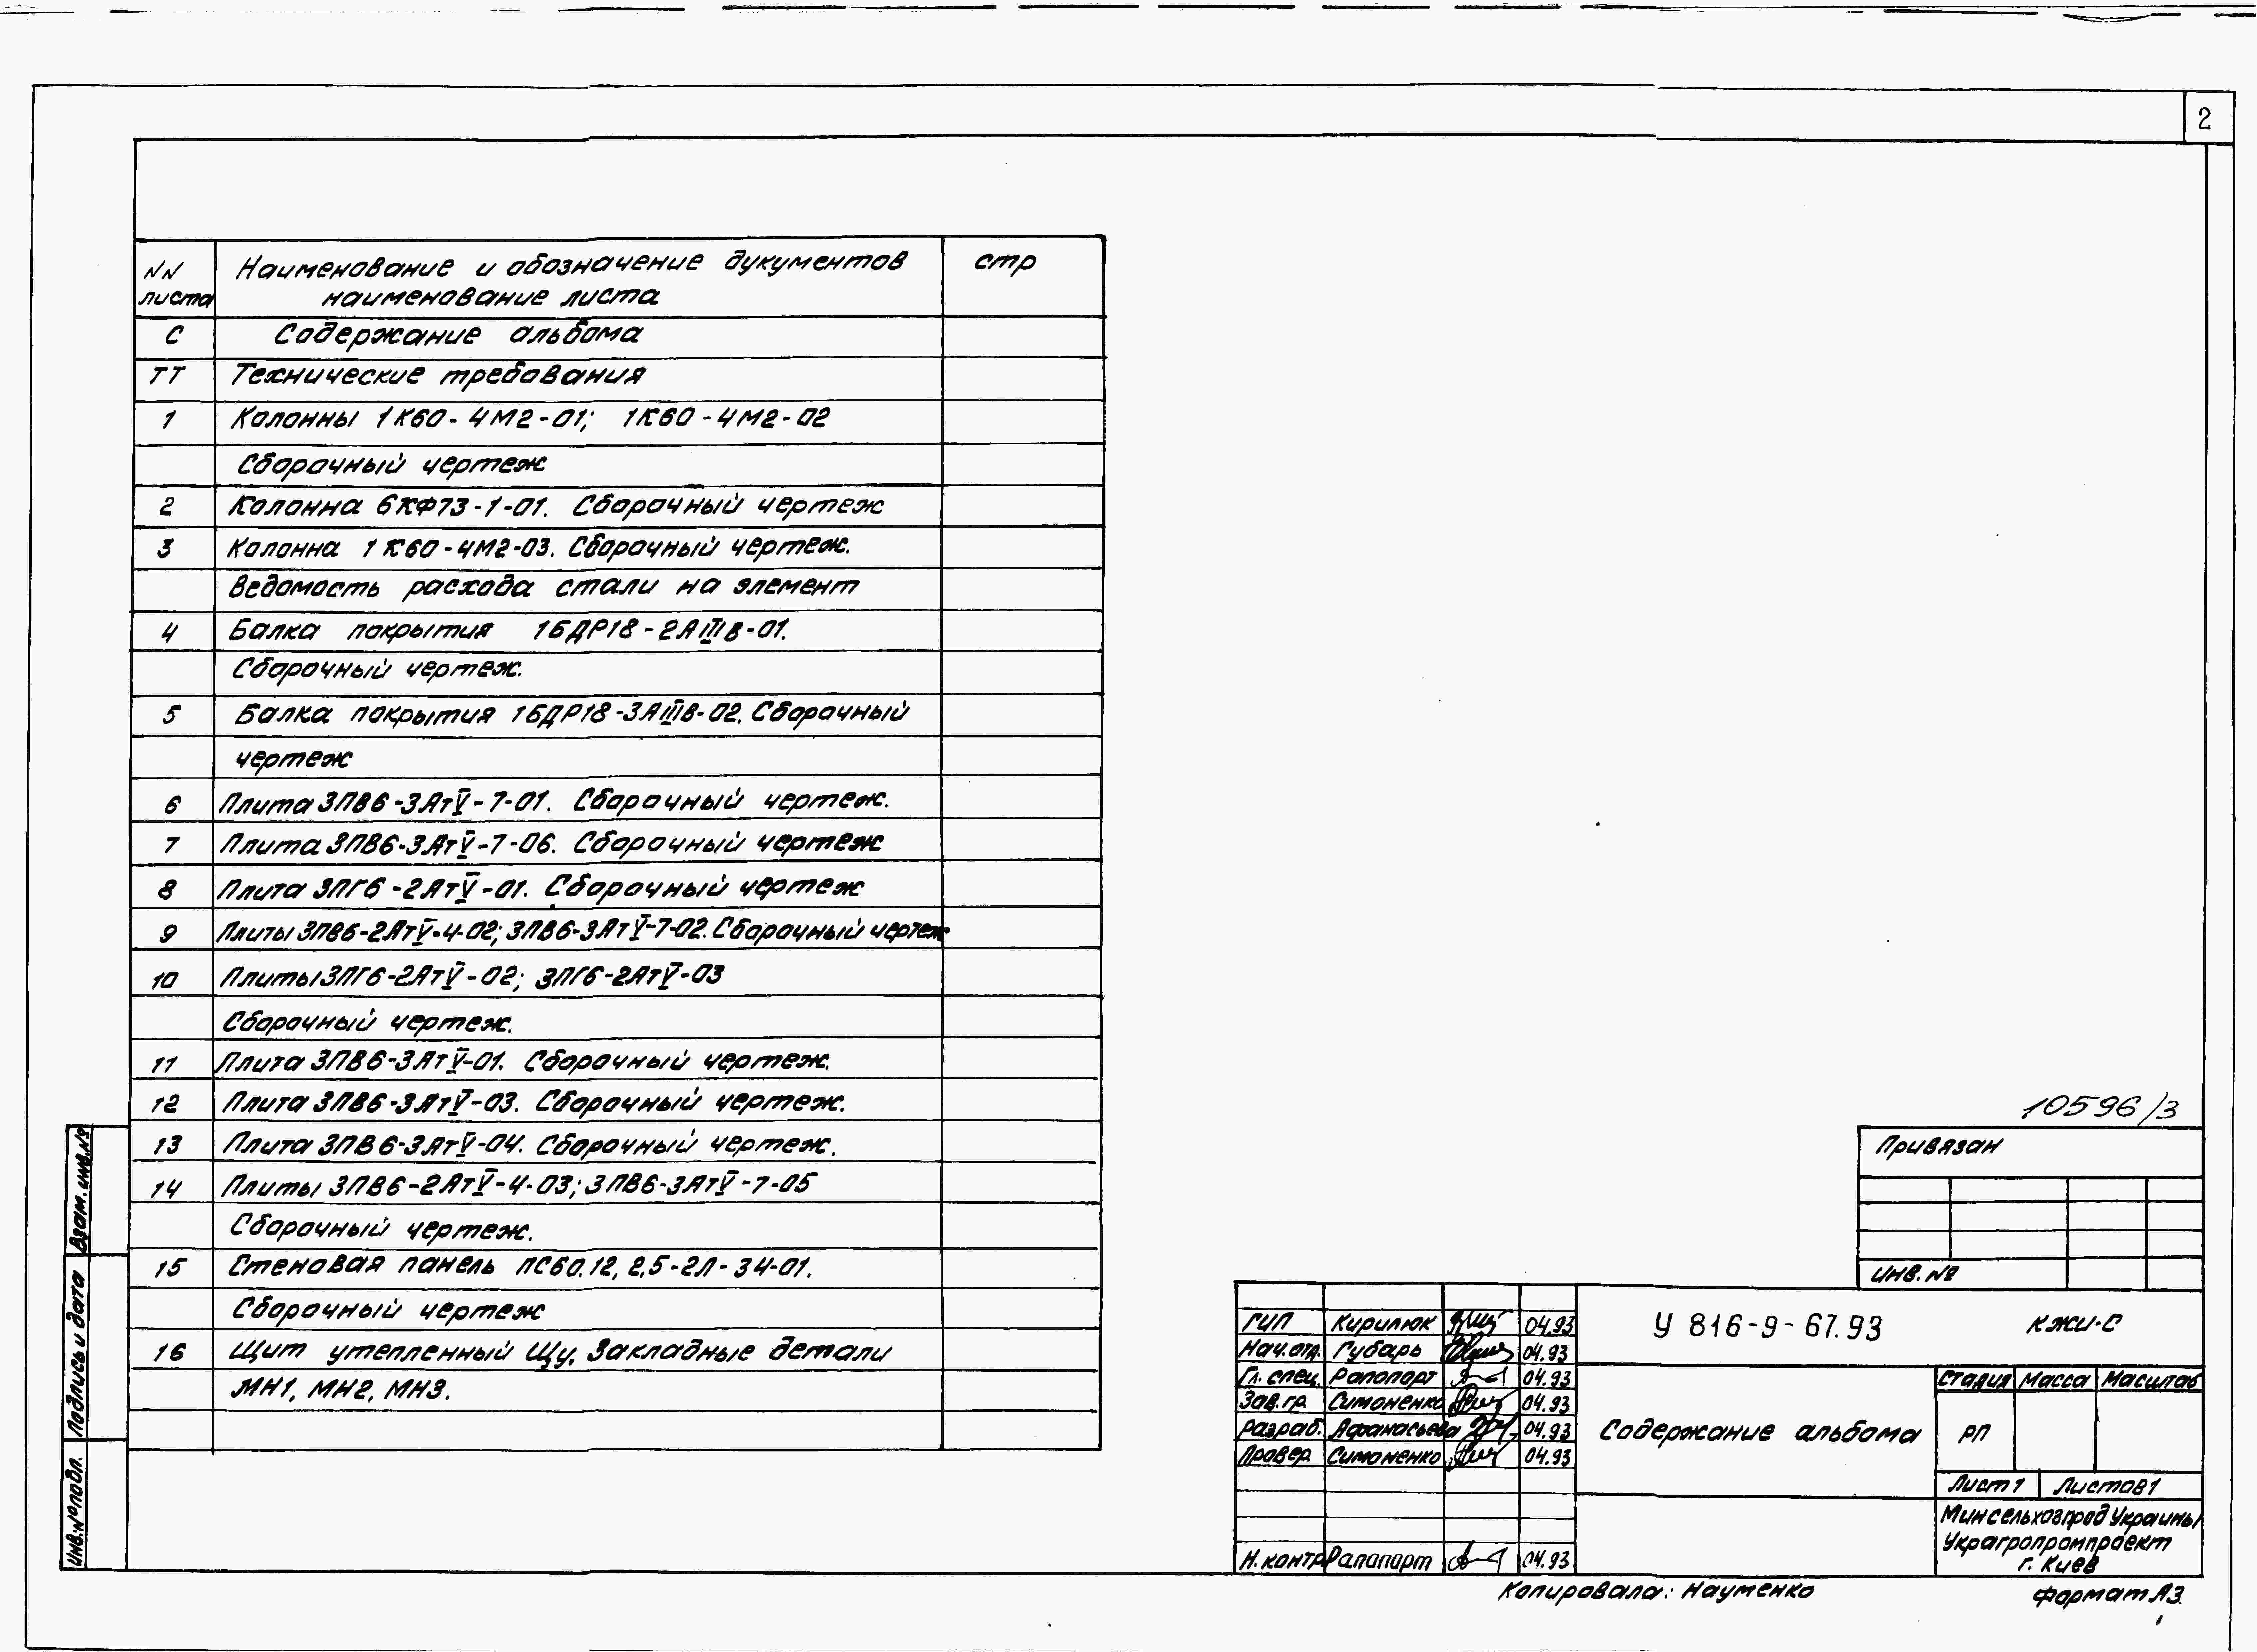 2
NN Наименование и обозначение дукументов стр
листа наименование листа
С Содержание альбома
ТТ Технические требования
1 Колонны 1К60-4М2-01; 1К60-4М2-02
Сборочный чертеж
2 Колонна 6КФ73-1-01. Сборочный чертеж
3 Колонна 1К60-4М2-03. Сборочный чертеж.
Ведомость расхода стали на элемент
4 Балка покрытия 1БДР18-2АIIIв-01.
Сборочный чертеж.
5 Балка покрытия 1БДР18-3АIIIв-02. Сборочный
чертеж
6 Плита 3ПВ6-3АтV-7-01. Сборочный чертеж.
7 Плита 3ПВ6-3АтV-7-06. Сборочный чертеж
8 Плита 3ПГ6-2АтV-01. Сборочный чертеж
9 Плиты 3ПВ6-2АтV-4-02; 3ПВ6-3АтV-7-02. Сборочный чертеж
10 Плиты 3ПГ6-2АтV-02; 3ПГ6-2АтV-03
Сборочный чертеж.
11 Плита 3ПВ6-3АтV-01. Сборочный чертеж.
12 Плита 3ПВ6-3АтV-03. Сборочный чертеж.
13 Плита 3ПВ6-3АтV-04. Сборочный чертеж.
14 Плиты 3ПВ6-2АтV-4-03; 3ПВ6-3АтV-7-05
Сборочный чертеж.
15 Стеновая панель ПС60.12, 2,5-2Л-34-01.
Сборочный чертеж
16 Щит утепленный Щу. Закладные детали
МН1, МН2, МН3.
Взам. инв. №
Подпись и дата
Инв. № подл.
10596/3
Привязан
Инв. №
ГИП Кирилюк 04.93
Нач. отд. Губарь 04.93
Гл. спец. Рапопорт 04.93
Зав. гр. Симоненко 04.93
Разраб. Афанасьева 04.93
Провер. Симоненко 04.93
Н. контр. Рапапарт 04.93
У 816-9-67.93 КЖИ-С
Содержание альбома
Стадия Масса Масштаб
РП
Лист 1 Листов 1
Минсельхозпрод Украины
Украгропромпроект
г. Киев
Копировала: Науменко Формат А3